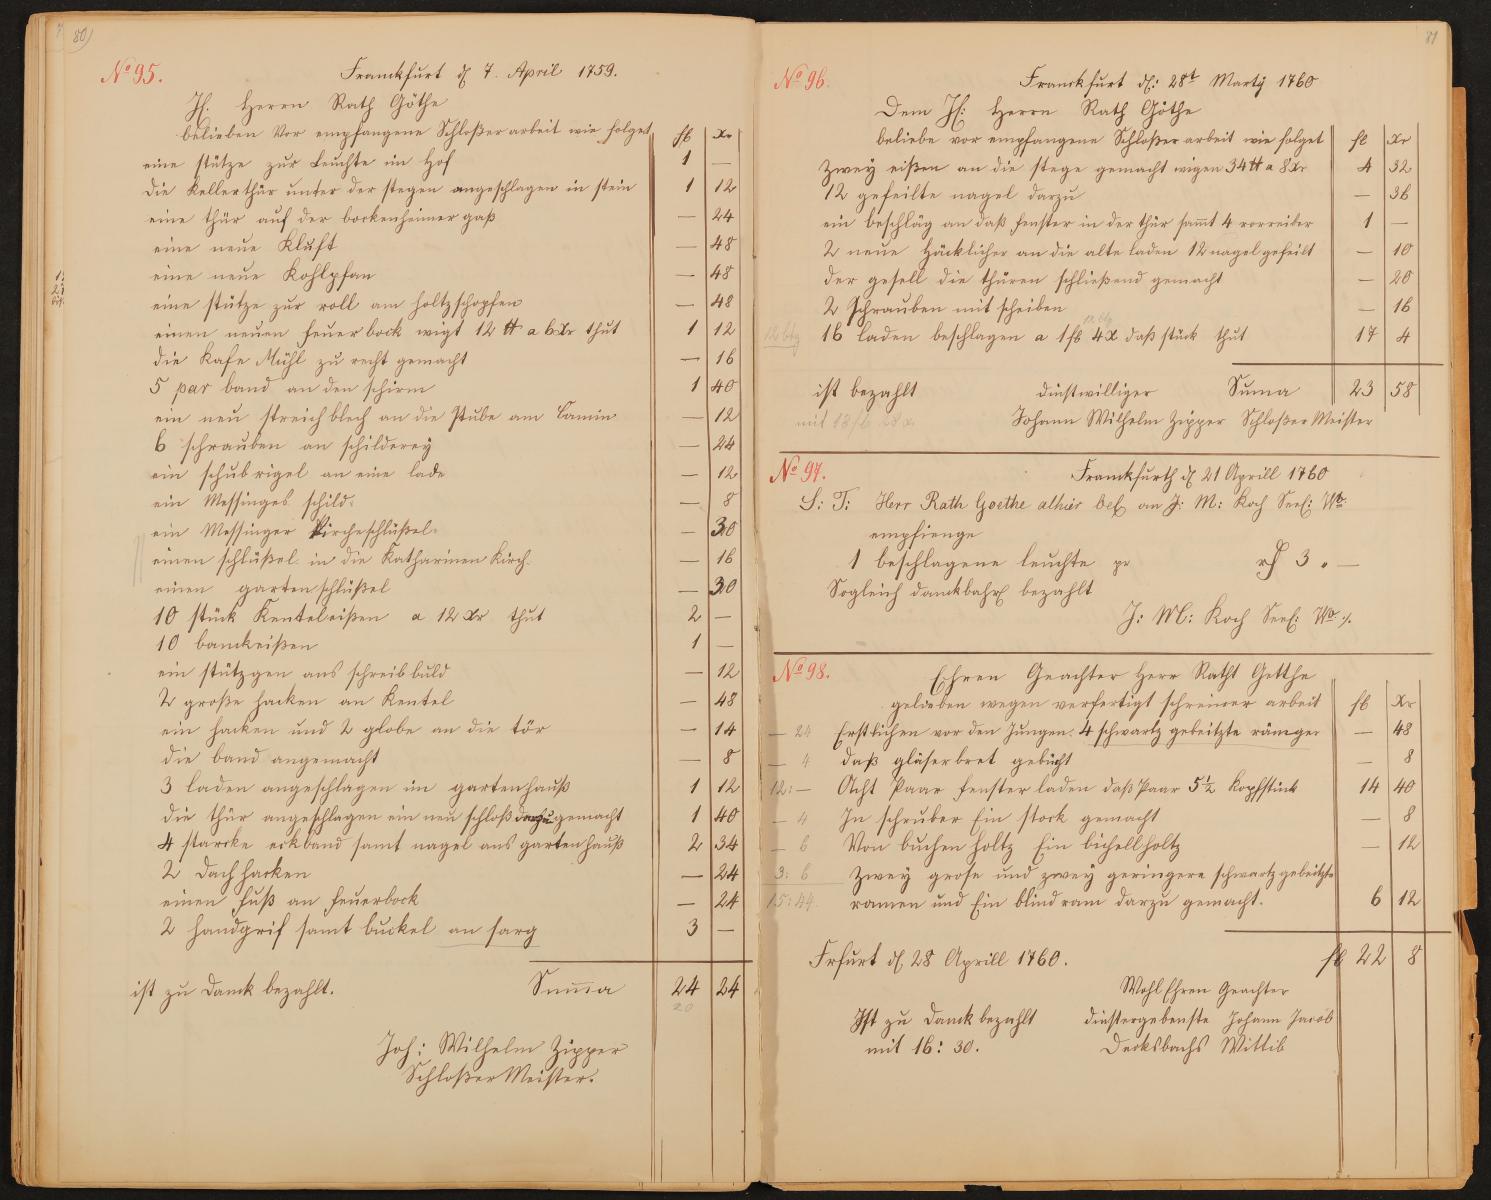 80)
No 95.
Franckfurt d 7. April 1759.
Jh. Herrn Rath Göthe
belieben Vor empfangene Schloßerarbeit wie folget fl xr
eine stütze zur Leuchte im Hof 1 —
die Kellerthür unter der stegen angeschlagen in stein 1 12
eine thür auf der bockenheimer gaß — 24
eine neue Kluft — 48
eine neue Kohlpfan — 48
eine stütze zur roll am holtzschopfen — 48
einen neuen feuerbock wigt 12 tt a 6 xr thut 1 12
die Kafe Mühl zu recht gemacht — 16
5 par band an den schirm 1 40
ein neu streichblech an die stube am Camin — 12
6 schrauben an schilderey — 24
ein schubrigel an eine lade — 12
ein Messinges schild — 8
ein Messinger Kircheschlüßel — 30
einen schlüßel in die Katharinen Kirch — 16
einen gartenschlüßel — 30
10 stück Kenteleißen a 12 xr thut 2 —
10 banckeißen 1 —
ein stützgen ans schreibbuld — 12
2 große hacken an Kentel — 48
ein hacken und 2 globe an die tör — 14
die band angemacht — 8
3 laden angeschlagen im gartenhauß 1 12
die thür angeschlagen ein neu schloß darzu gemacht 1 40
4 starcke eckband samt nagel ans gartenhauß 2 34
2 dachhacken — 24
einen fuß an feuerbock — 24
2 handgrif samt buckel an sarg 3 —
ist zu Danck bezahlt. Suma 24 24
20
Joh: Wilhelm Zipper
Schloßer Meister.
81
No 96.
Franckfurt d: 28t Martÿ 1760
Dem Jh: Herrn Rath Göthe
beliebe vor empfangene Schloßerarbeit wie folget fl xr
zwey eißen an die stege gemacht wigen 34 tt a 8 xr 4 32
12 gefeilte nagel darzu — 36
ein beschläg an daß fenster in der thür sammt 4 vorreiber 1 —
2 neue häcklicher an die alte laden 12 nagel gefeilt — 10
der gesell die thüren schließend gemacht — 20
2 schrauben mit scheiben — 16
12 btz 16 laden beschlagen a 1 fl 4 x daß stück thut 17 4
ist bezahlt dinstwilliger Suma 23 58
Johann Wilhelm Zipper Schloßer Meister
No 97.
Franckfurth d 21 Aprill 1760
S: T: Herr Rath Goethe alhier von J: M: Koch Seel: Wb:
empfienge
1 beschlagene leuchte pr 3 . —
Sogleich danckbahr bezahlt
J: M: Koch Seel: Wb: ./.
No 98.
Ehren Geachter Herr Ratht Getthe
geldeben wegen verfertigt schreiner arbeit fl xr
— 24 Erstlichen vor den Jungen 4 schwartz gebeitzte rämger — 48
— 4 daß gläserbret gebücht — 8
12: — Acht Paar fenster laden daß Paar 5½ Kopfstück 14 40
— 4 In schruber Ein stock gemacht — 8
— 6 Von buchen holtz Ein bichellholtz — 12
3: 6 Zwey grose und zwey geringere schwartz gebeitzte
15: 44. ramen und Ein blindram darzu gemacht. 6 12
Frfurt d 28 Aprill 1760. fl 22 8
Wohl Ehren Geachter
Ist zu Danck bezahlt dinstergebenste Johann Jacob
mit 16: 30. Decksbachs Wittib